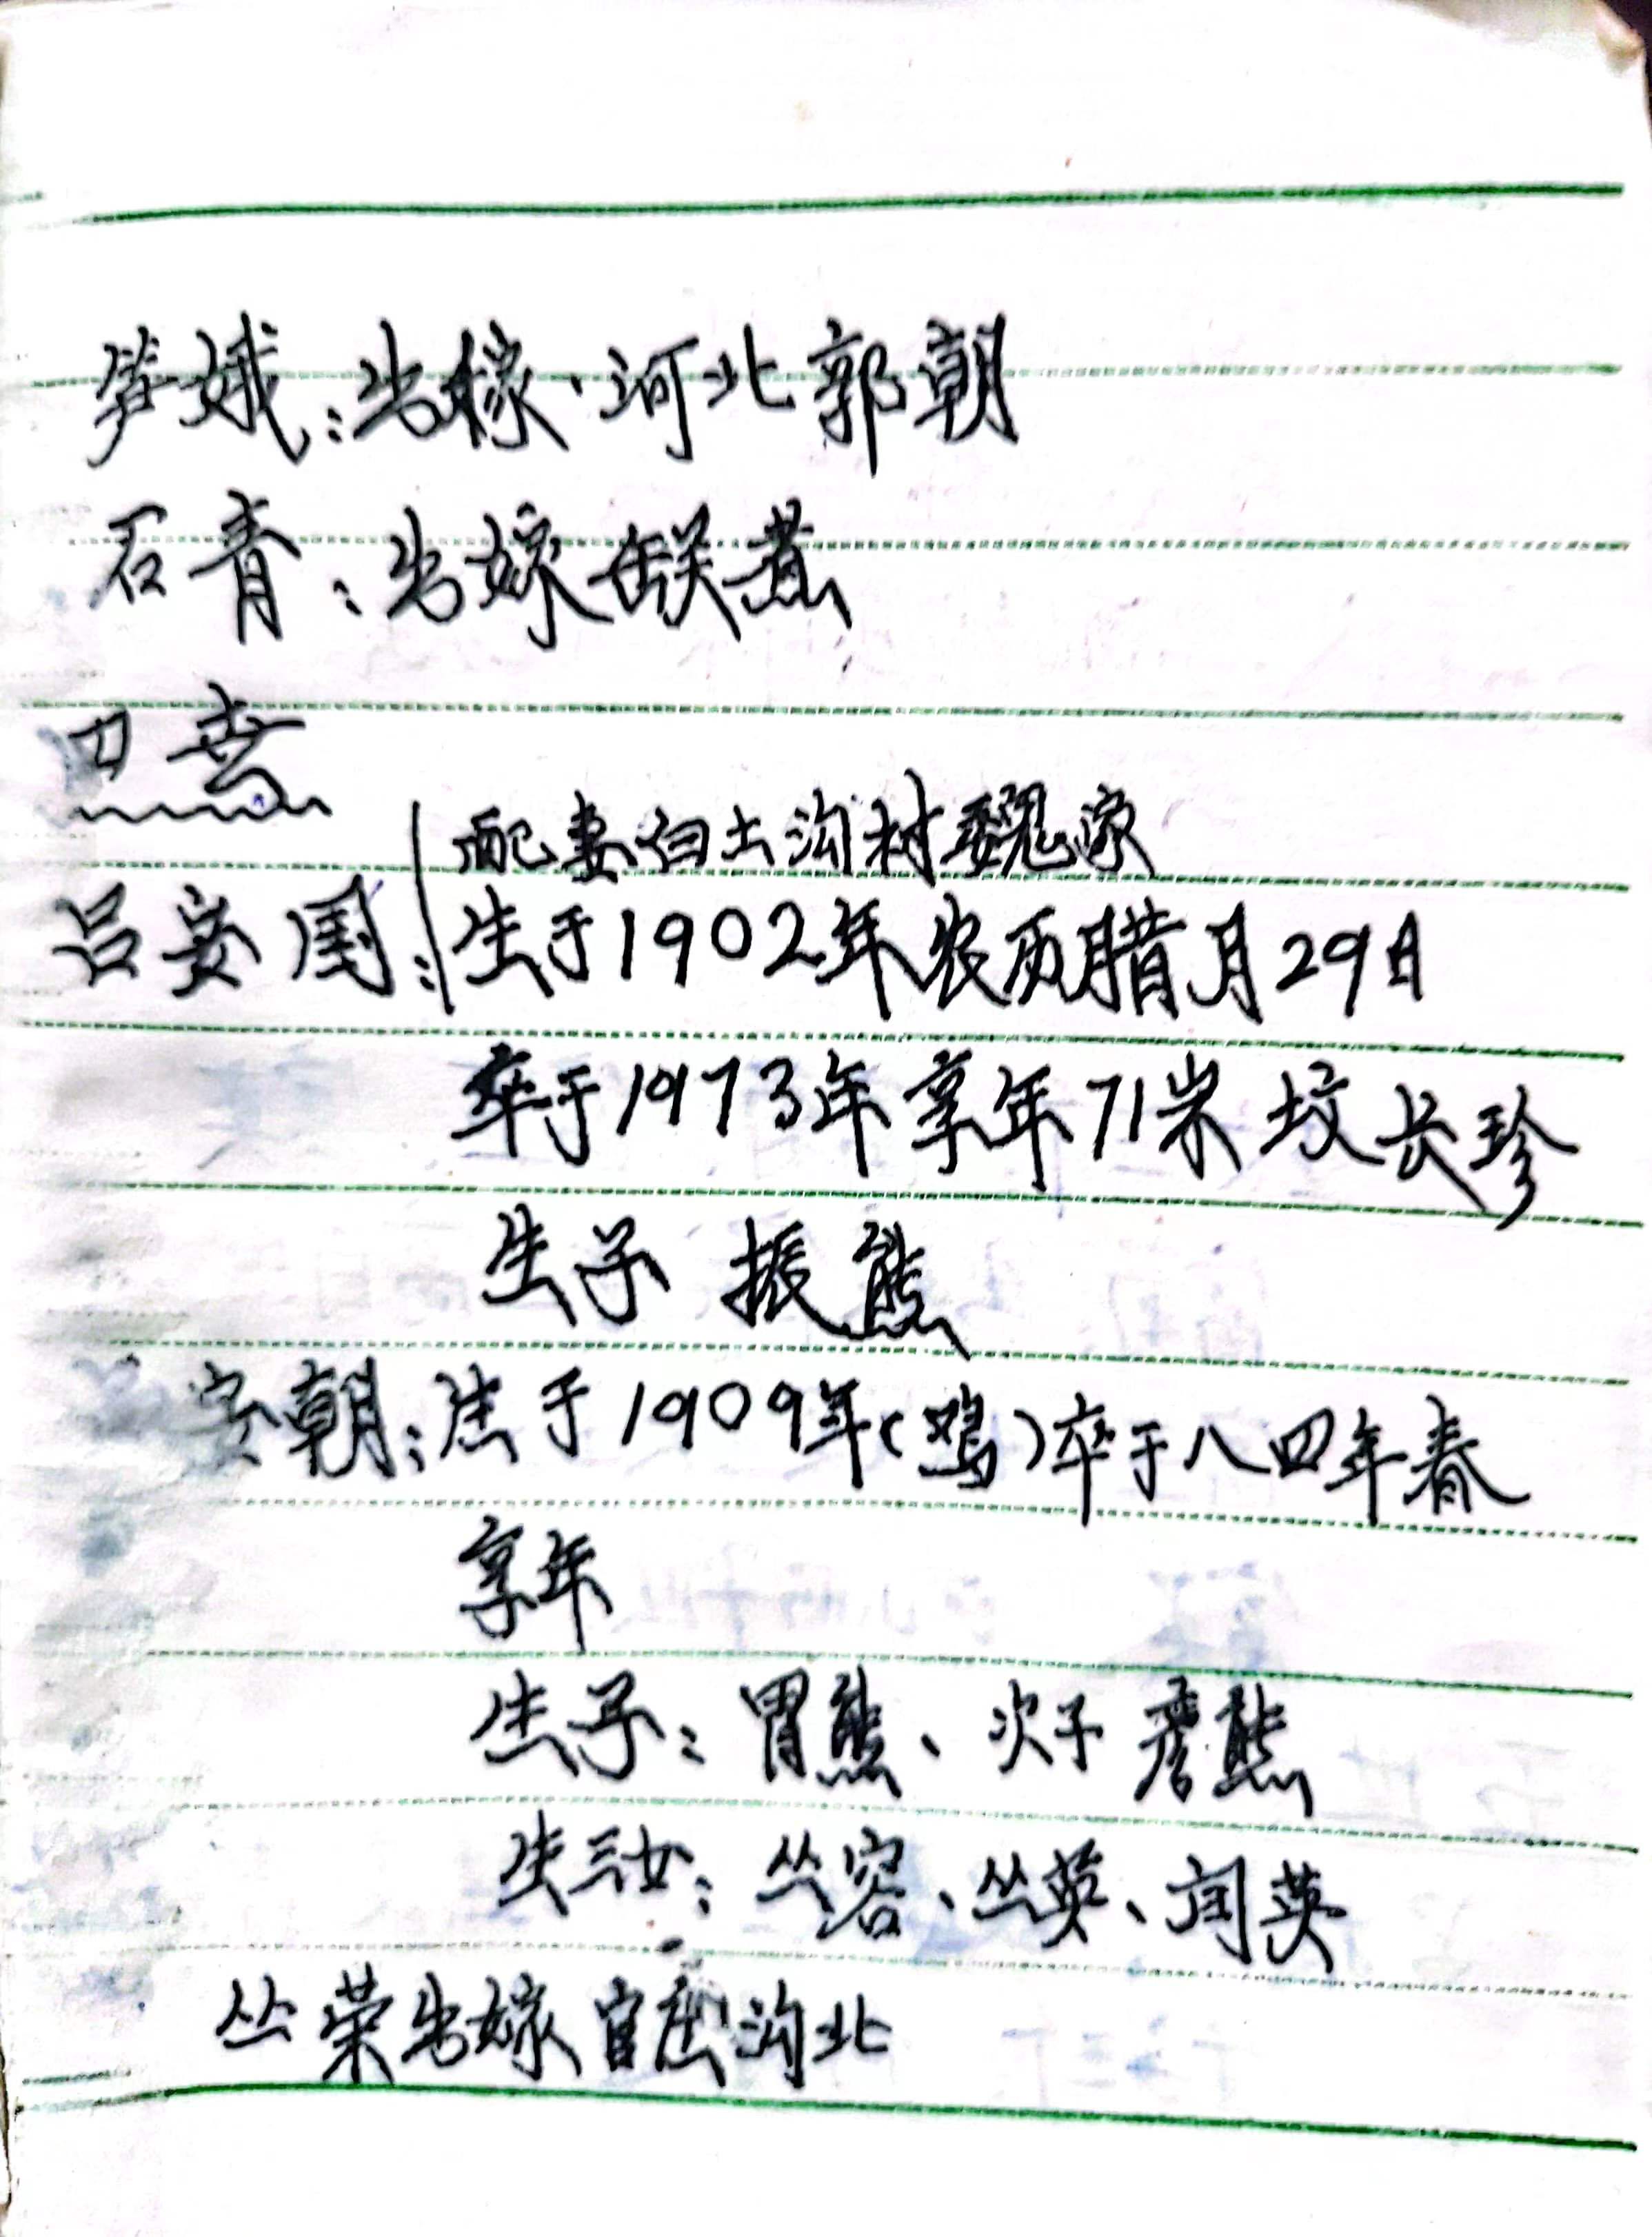 笋娥：出嫁·河北郭朝
石青：出嫁
配妻白土沟村魏家
吕安国：生于1902年农历腊月29日
卒于1973年享年71岁 坟长珍
生子 振熊
安朝：生于1909年（鸡）卒于八四年春
享年
生子：胃熊、次子 彦熊
生三女：丛容、丛英、闰英
丛荣出嫁官庄沟北